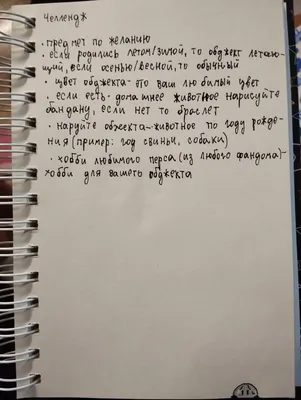 Челлендж
• предмет по желанию
• если родились летом/зимой, то обджект летаю-
щий, если осенью/весной, то обычный
• цвет обджекта - это ваш любимый цвет
• если есть домашнее животное нарисуйте
бандану, если нет то браслет
• наруйте обжекта - животное по году рожде-
ния (пример: год свиньи, собаки)
• хобби любимого перса (из любого фандома) -
хобби для вашего обджекта